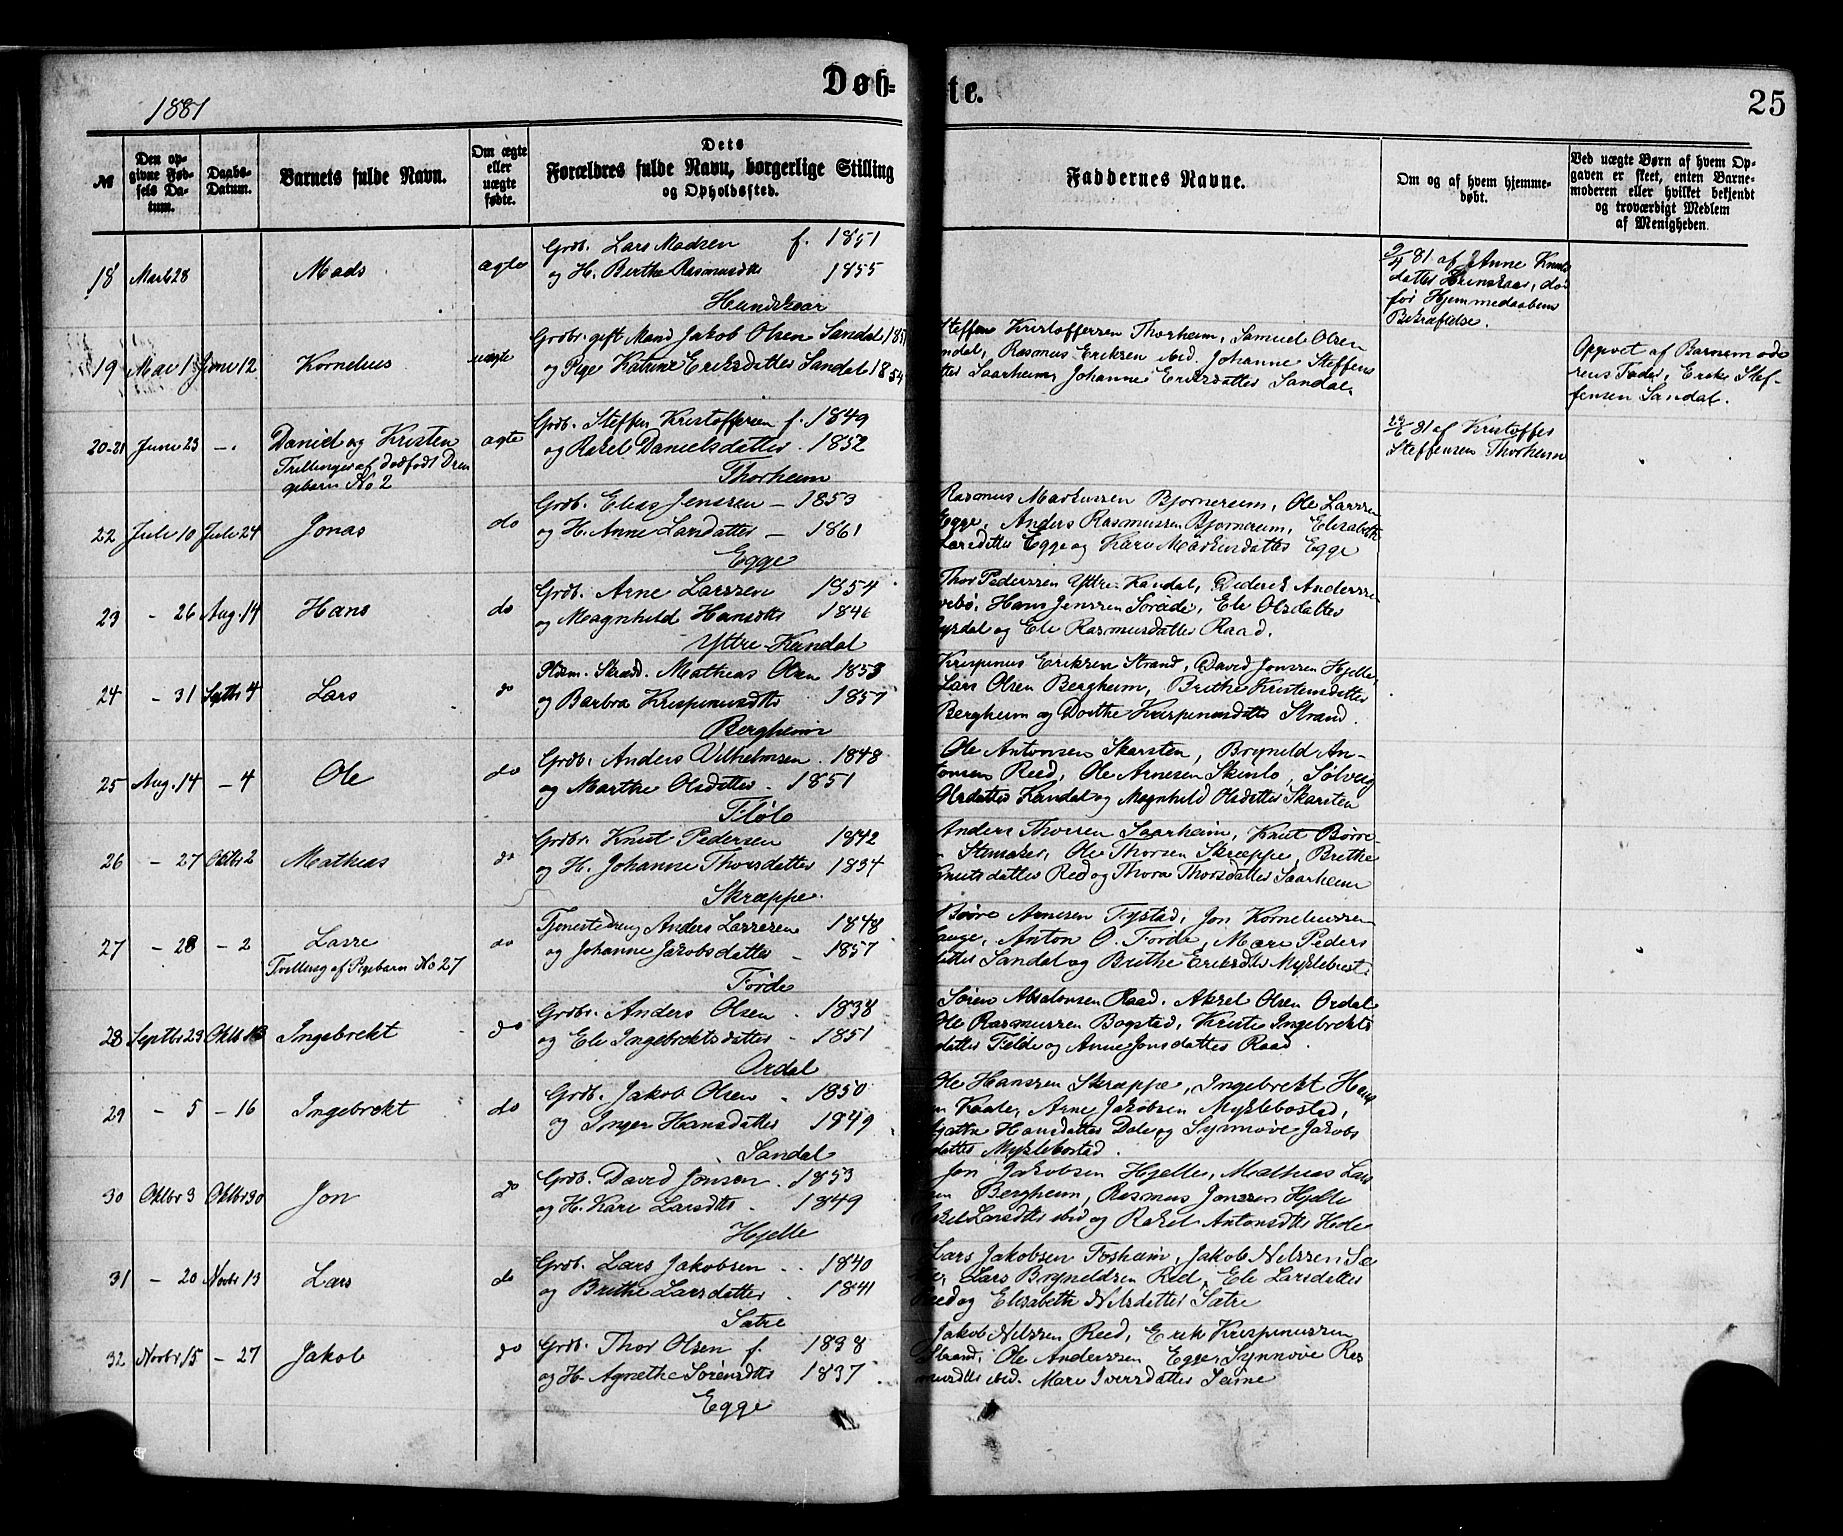 1881
Døb=
te.
25
№
Den op-
givne Fød-
sels Da-
tum.
Daabs-
Datum.
Barnets fulde Navn.
Om ægte
eller
uægte
fødte.
Dets
Forældres fulde Navn, borgerlige Stilling
og Opholdssted.
Faddernes Navne.
Om og af hvem hjemme-
døbt.
Ved uægte Børn af hvem Op-
gaven er skeet, enten Barne-
moderen eller hvilket bekjendt
og troværdigt Medlem
af Menigheden.
18 Marts 28 Mads ægte
Grdb. Lars Madsen f. 1851
og H. Berthe Rasmusdtr 1855
Hundskaar
81 af Anne Knuts
datter Hundskaar, død
før Hjemmedaabens
Bekræftelse.
19 Mai 1 Juni 12 Kornelius uægte
Grdbr. gift Mand Jakob Olsen Sandal 185
og Pige Katrine Eriksdatter Sandal 1854
Steffen Kristoffersen Thorheim, Samuel Olsen
ndal, Rasmus Eriksen ibid. Johanne Steffens
tter Saarheim, Johanne Eriksdatter Sandal.
Opgivet af Barnemode
rens Fader, Erik Stef-
fensen Sandal.
20-21 Juni 23 -. Daniel og Kristen ægte
Trillinger af dødfødt Dren
gebarn No 2
Grdb. Steffen Kristoffersen f. 1849
og Rakel Danielsdatter - 1852
Thorheim
81 af Kristoffer
Steffensen Thorheim
22 Juli 10 Juli 24 Jonas do
Grdb. Elias Jenssen - 1853
og H. Anne Larsdatter - 1861
Egge
Rasmus Markussen Bjørnereim, Ole Larssen
Egge, Anders Rasmussen Bjørnereim, Elisabeth
Larsdatter Egge og Kari Markusdatter Egge
23 - 26 Aug. 14 Hans do
Grdb. Arne Larssen 1854
og Magnhild Hansdtr 1846
Yttre Kandal
Thor Pederssen Yttre Kandal, Diderik Anderssen
vebø, Hans Jenssen Søreide, Eli Olsdatter
yrdal og Eli Rasmusdatter Raad.
24 - 31 Septbr 4 Lars do
Pldsm. Skræd. Mathias Olsen 1853
og Barbra Krispinusdtr 1857
Bergheim
Krispinus Eriksen Strand, David Jonssen Hjelle,
Lars Olsen Bergheim, Brithe Kristensdatter
Bergheim og Dorthe Krispinusdatter Strand.
25 Aug. 14 - 4 Ole do
Grdb. Anders Vilhelmsen . 1848
og Marthe Olsdatter . 1851
Fløtø
Ole Antonsen Skarsten, Bryneld An-
tonsen Reed, Ole Arnesen Skinlo, Sølveig
Olsdatter Kandal og Magnhild Olsdatter Skarsten
26 - 27 Oktbr 2 Mathias do
Grdbr. Knut Pedersen 1842
og H. Johanne Thorsdatter 1834
Skræppe.
Anders Thorsen Saarheim, Knut Børre
Ole Thorsen Skræppe, Brithe
Knutsdatter Red og Thora Thorsdatter Saarheim
27 - 28 - 2 Lasse do
Tvilling af Pigebarn No 27
Tjenestedreng Anders Larssen 1848
og Johanne Jakobsdatter - 1857
Førde
Børre Arnesen Fystad, Jon Korneliussen
auge, Anton O. Førde, Mari Peders
datter Sandal og Brithe Eriksdtr Myklebust.
28 Septbr 23 Oktb 13 Ingebrekt do
Grdbr. Anders Olsen . 1838
og Eli Ingebrektsdatter . 1851
Ordal
Søren Absalonsen Raad, Aksel Olsen Ordal
Ole Rasmussen Bogstad, Kristi Ingebrekts
datter Felde og Anne Jonsdatter Raad.
29 - 5 - 16 Ingebrekt do
Grdb. Jakob Olsen . 1850
og Inger Hansdatter 1849
Sandal
Ole Hanssen Skræppe, Ingebrekt Hans
en Kaale, Arne Jakobsen Myklebostad,
Agathe Hansdatter Dale og Synnøve Jakobs
datter Myklebostad.
30 Oktbr 3 Oktbr 30 Jon do
Grdb. David Jonsen . 1853
og H. Kari Larsdtr . 1849
Hjelle
Jon Jakobsen Hjelle, Mathias Lars
en Bergheim, Rasmus Jonssen Hjelle
Rakel Larsdtr ibid og Rakel Antonsdtr Hede
31 - 20 Novbr 13 Lars do
Grdb. Lars Jakobsen . . 1840
og Brithe Larsdatter . 1841
Sætre
Lars Jakobsen Fosheim, Jakob Nilssen Sæ
, Lars Bryneldsen Red, Eli Larsdatter
Reed og Elisabeth Nilsdatter Sætre
32 Novbr 15 - 27 Jakob do
Grdb. Thor Olsen f. 1838
og H. Agnethe Sørensdtr 1837
Egge
Jakob Nilssen Reed, Erik Krispinussen
Strand, Ole Anderssen Egge, Synnøve Ras
musdtr ibid. Mari Iversdatter Seime